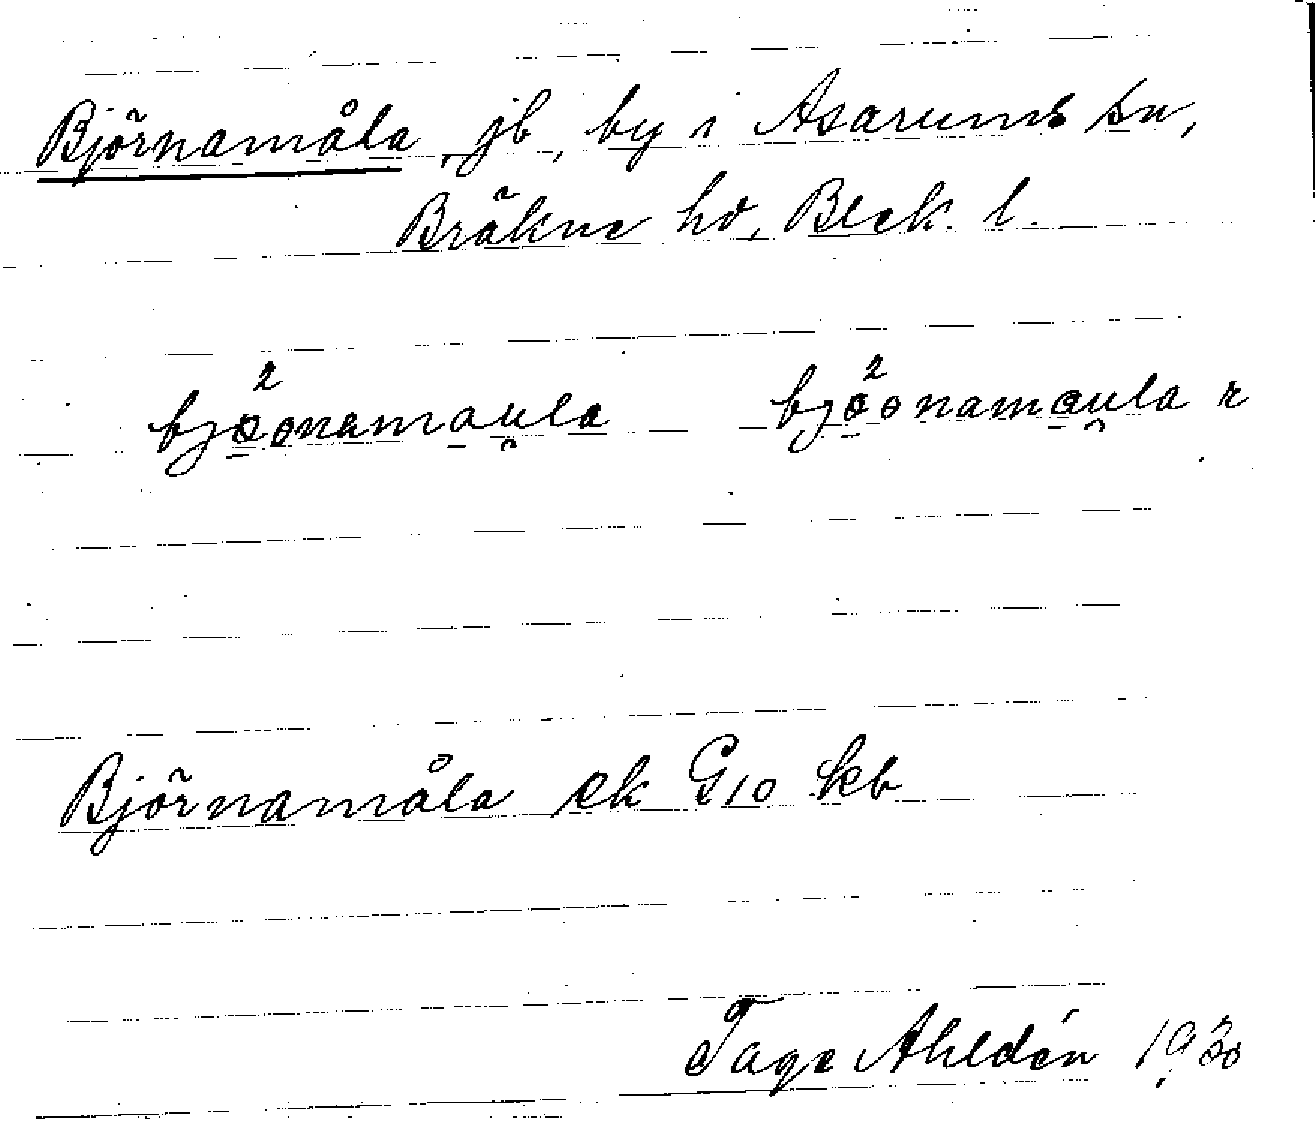 Björnamåla, jb, by i Asarums sn,
Bräkne hd, Blek. l.
bjöonamaula bjöonamaula r
Björnamåla ek G10 kb
Tage Ahldén 1930